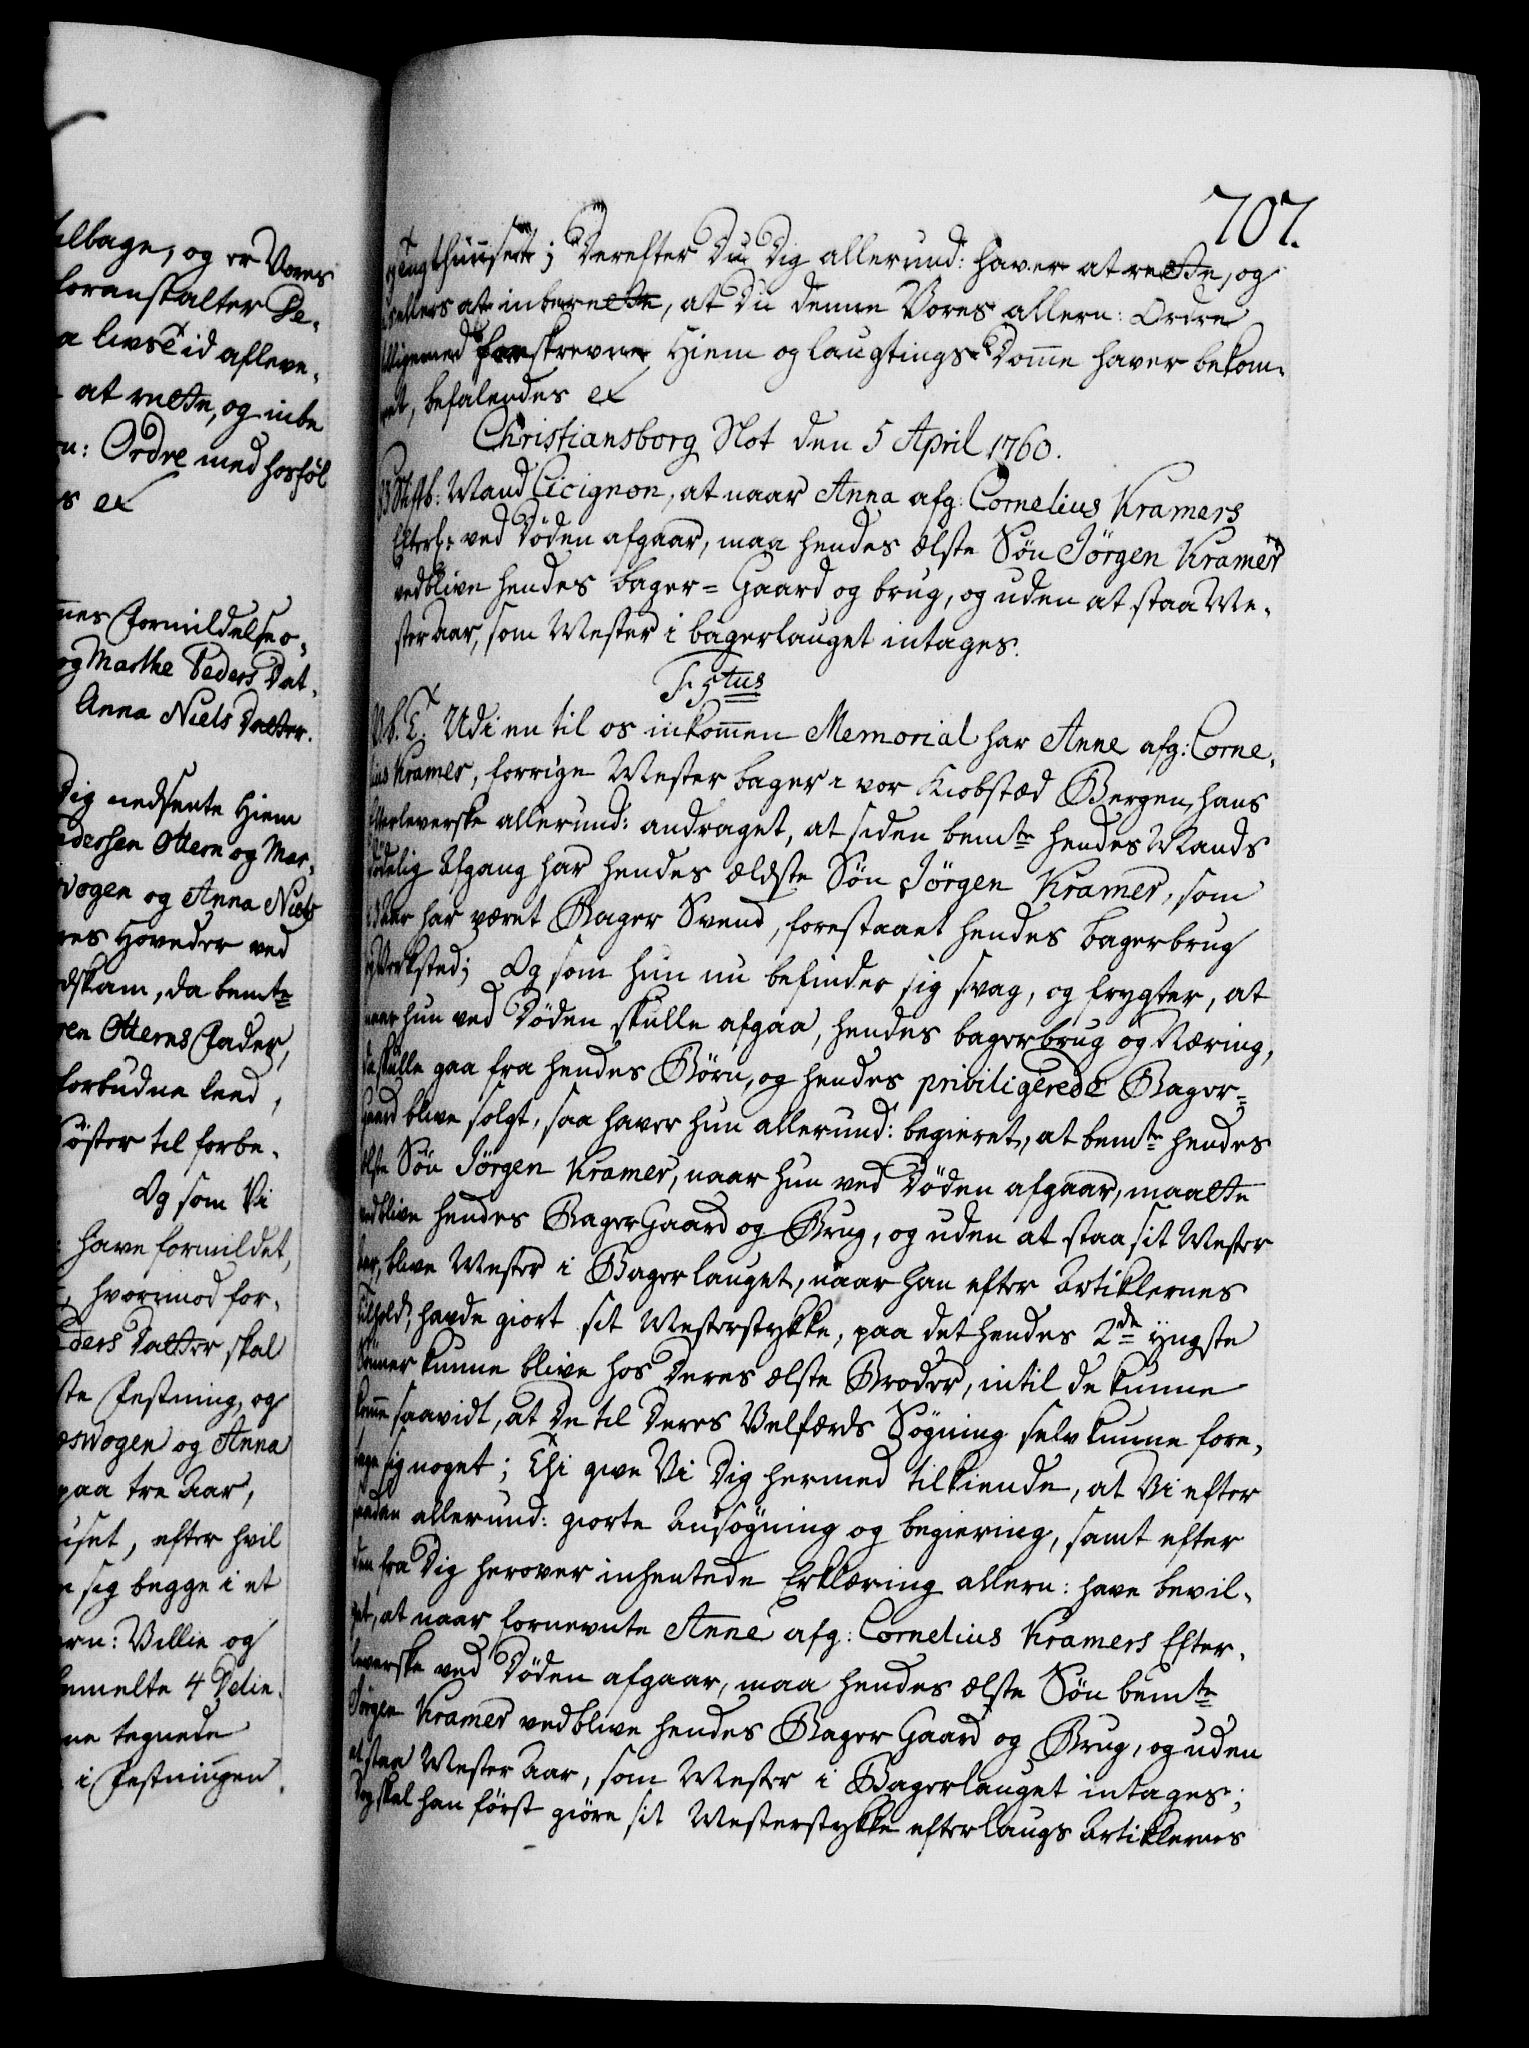 tilbage, og er Vores
foranstalter De-
a livs Tid afleve-
at rette, og inbe
rn: Ordre med hosföl
s &c
nes Formildelse o-
og Marthe Peders Dat-
Anna Niels Datter.
Dig nedsente Hiem
edersen Ottern og Mar-
wogen og Anna Niels
res Hoveder ved
dskam, da bemte
ren Otterns Fader,
forbudne Leed,
Söster til forbe-
Og som Vi
have formildet,
, hvorimod for-
ders Datter skal
ste Festning, og
swogen og Anna
paa tre Aar,
uset, efter hvil
n sig begge i et
ern: Villie og
bemelte 4 Delin-
ne tegnede
i Festningen
707.
og Tugthuuset; Derefter Du Dig allerund: haver at rette, og
ellers at inberette, at Du denne Vores allern: Ordre
tilligemed forskrevne Hiem og Laugtings-Domme haver bekom-
met, befalendes &c
Christiansborg Slot den 5 April 1760.
Stiftb: Mand Cicignon, at naar Anna afg: Cornelius Kramers
Efterl: ved Döden afgaar, maa hendes ælste Sön Jörgen Kramer
vedblive hendes bager-Gaard og brug, og uden at staa Me-
ster Aar, som Mester i bagerlauget intages.
F. 5tus
V. G. T. Udi en til os inkommen Memorial har Anne afg: Corne-
lius Kramer, forrige Mester bager i vor Kiobstæd Bergen, hans
Efterleverske allerund: andraget, at siden bemte hendes Mands
dödelig Afgang har hendes ældste Sön Jörgen Kramer, som
Aar har været Bager Svend, forestaaet hendes bagerbrug
og Verksted; Og som hun nu befinder sig svag, og frygter, at
naar hun ved Döden skulle afgaa, hendes bagerbrug og Næring,
da skulle gaa fra hendes Börn, og hendes priviligerede Bager-
gaard blive solgt, saa haver hun allerund: begieret, at bemte hendes
ælste Sön Jörgen Kramer, naar hun ved Döden afgaar, maatte
vedblive hendes Bager Gaard og Brug, og uden at staa sit Mester
Aar, blive Mester i Bagerlauget, naar han efter Artiklernes
Tilhold, havde giort sit Mesterstykke, paa det hendes 2de yngste
Sönner kunne blive hos Deres ælste Broder, intil de kunne
komme saavidt, at De til Deres Velfærds Sögning selv kunne fore-
tage sig noget; Thi give Vi Dig hermed tilkiende, at Vi efter
saadan allerund: giorte Ansögning og begiering, samt efter
den fra Dig herover inhentede Erklæring allern: have bevil-
get, at naar fornevnte Anne afg: Cornelius Kramers Efter-
leverske ved Döden afgaar, maa hendes ælste Sön bemte
Jörgen Kramer vedblive hendes Bager Gaard og Brug, og uden
at staa Mester Aar, som Mester i Bagerlauget intages;
Dog skal han först giöre sit Mesterstykke efter Laugs Artiklernes